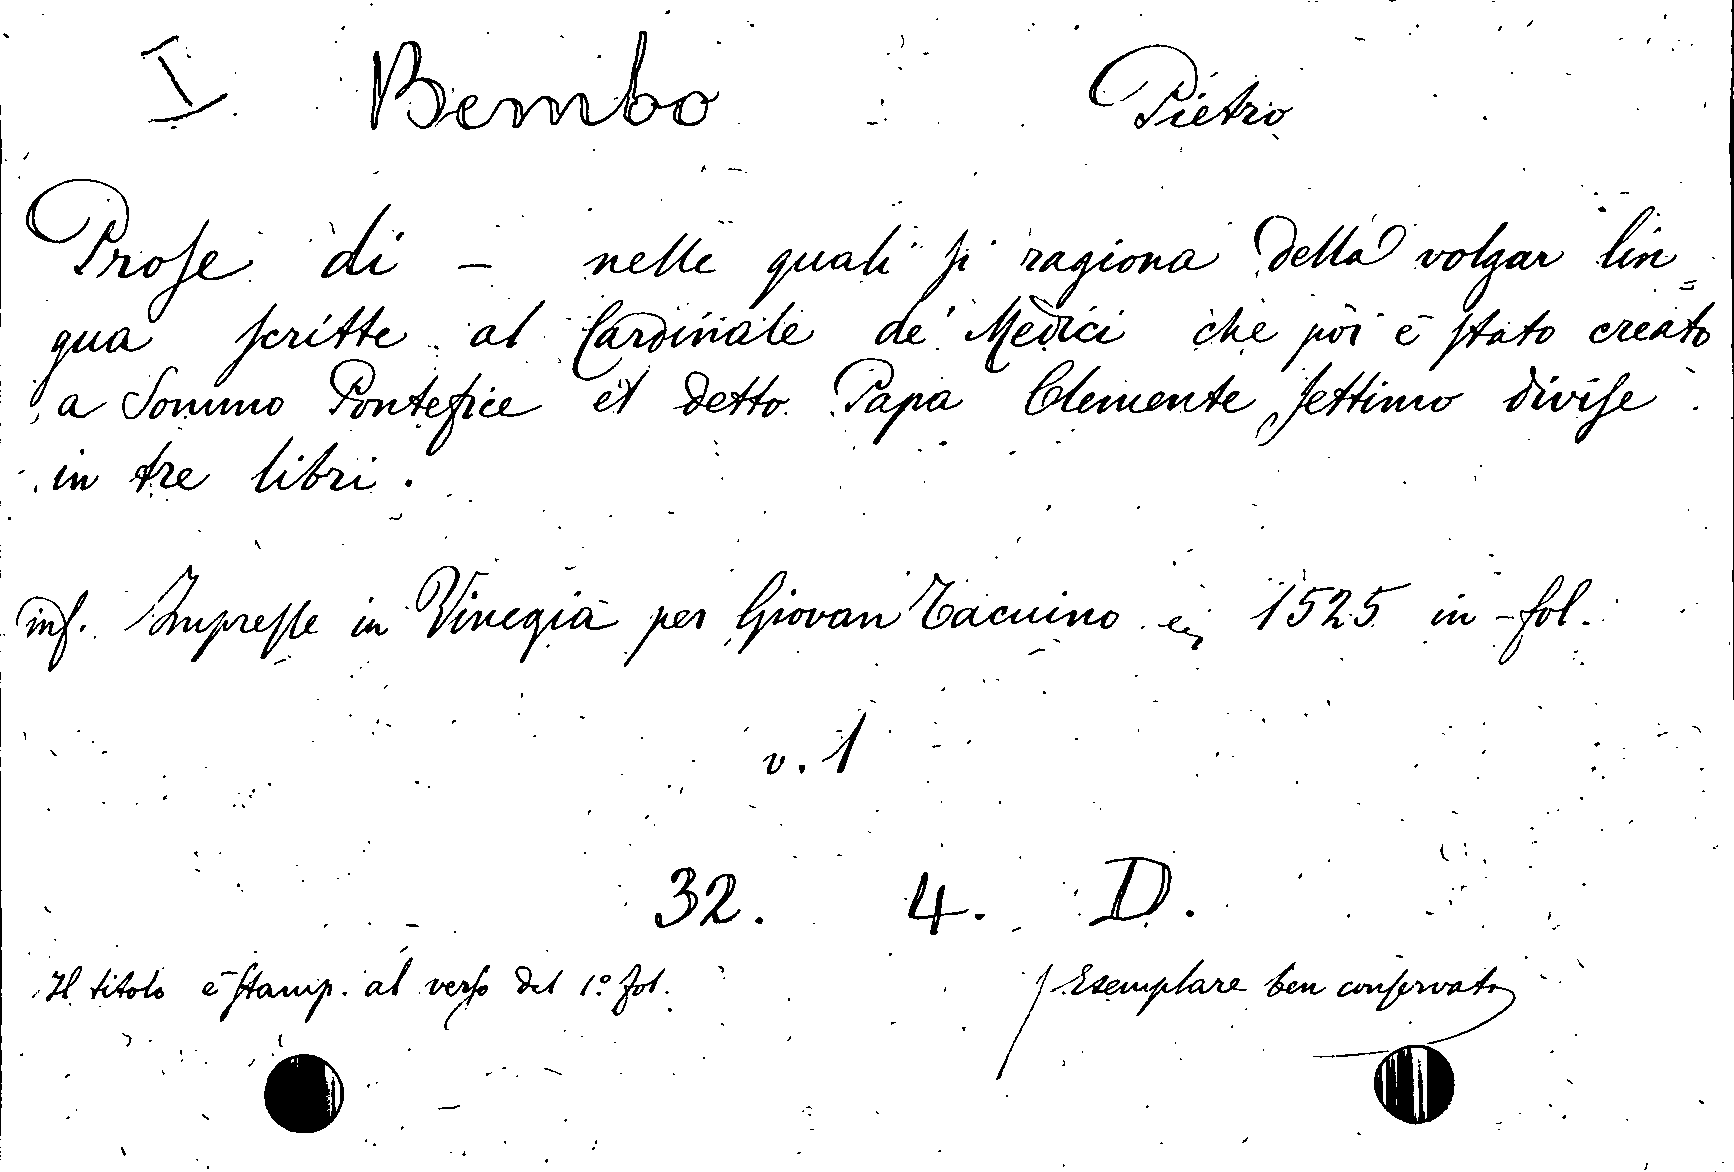 I Bembo Pietro
Proſe di - nelle quali ſi ragiona della volgar lin=
gua ſcritte al Cardinale de' Medici che poi è ſtato creato
a Sommo Pontefice et detto Papa Clemente ſettimo diviſe
in tre libri.
inf. Impreſſe in Vinegia per Giovan Tacuino 1525 in-fol.
v. 1
32. 4. D.
Il titolo è ſtamp. al verſo del 1° fol. Esemplare ben conſervato